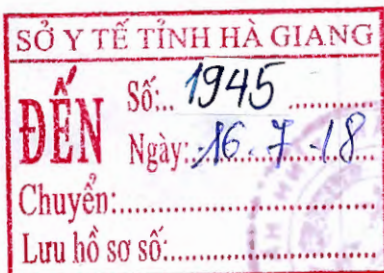 SỞ Y TẾ TỈNH HÀ GIANG
ĐẾN
Số:... 1945 ............
Ngày: 16.7.18
Chuyển:.............................
Lưu hồ sơ số:......................